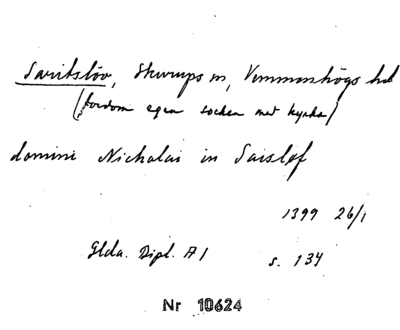 Saritslöv, Skurups sn, Vemmenhögs hd
(fordom egen socken med kyrka)
domini Nicholai in Saislef
1399 26/1
Glda. Dipl. A I s. 134
Nr 10624